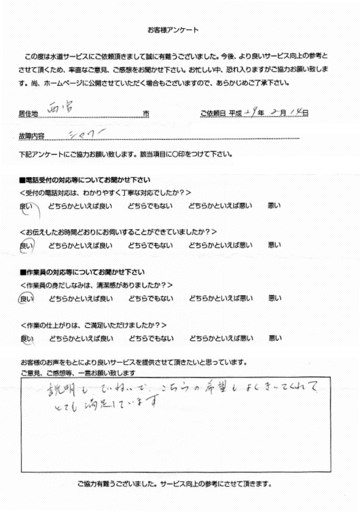 お客様アンケート
この度は水道サービスにご依頼頂きまして誠に有難うございました。今後、より良いサービス向上の参考と
させて頂くため、率直なご意見、ご感想をお聞かせ下さい。お忙しい中、恐れ入りますがご協力お願い致しま
す。尚、ホームページに公開させていただく場合もございますので、あらかじめご了承下さい。
居住地 西宮 市 ご依頼日 平成 29年 2月 14日
故障内容 シャワー
下記アンケートにご協力お願い致します。該当項目に〇印をつけて下さい。
■電話受付の対応等についてお聞かせ下さい
<受付の電話対応は、わかりやすく丁寧な対応でしたか?>
良い どちらかといえば良い どちらでもない どちらかといえば悪い 悪い
<お伝えしたお時間どおりにお伺いすることができていましたか?>
良い どちらかといえば良い どちらでもない どちらかといえば悪い 悪い
■作業員の対応等についてお聞かせ下さい
<作業員の身だしなみは、清潔感がありましたか?>
良い どちらかといえば良い どちらでもない どちらかといえば悪い 悪い
<作業の仕上がりは、ご満足いただけましたか?>
良い どちらかといえば良い どちらでもない どちらかといえば悪い 悪い
お客様のお声をもとにより良いサービスを提供させて頂きたいと思っています。
ご意見、ご感想等、一言お願い致します
説明もていねいで、こちらの希望もよくきいてくれて
とても満足しています
ご協力有難うございました。サービス向上の参考にさせて頂きます。